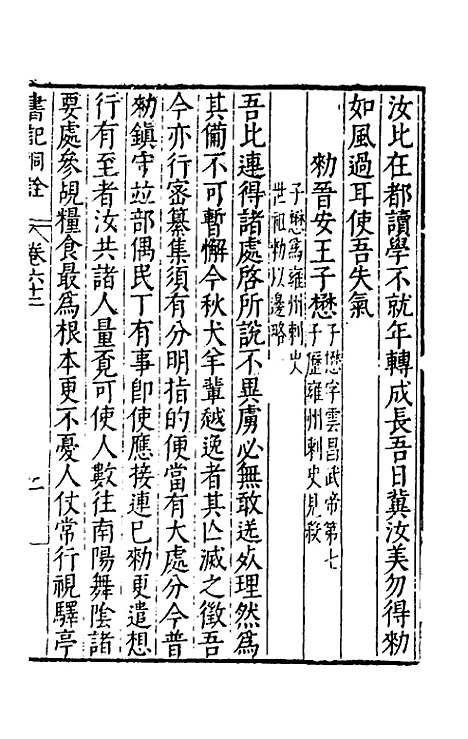 汝比在都讀學不就年轉成長吾日冀汝美勿得勑
如風過耳使吾失氣
勑晉安王子懋子懋字雲昌武帝第七
子歷雍州刺史見殺
子懋爲雍州刺史
世祖勑以邊略
吾比連得諸處啓所說不異虜必無敢送死理然爲
其備不可暫懈今秋犬羊輩越逸者其亾滅之徵吾
今亦行密纂集須有分明指的便當有大處分今普
勑鎮守竝部偶民丁有事卽使應接連已勑更遣想
行有至者汝共諸人量覔可使人數往南陽舞陰諸
要處參覘糧食最爲根本更不憂人仗常行視驛亭
書記洞詮
卷六十二
二